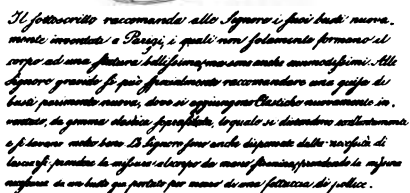 Il sottoscritto raccomanda alle Signore i suoi busti nuova-
mente inventati a Parigi, i quali non solamente formano il
corpo ad una statura bellissima, ma sono anche commodissimi. Alle
Signore gravide si può specialmente raccomandare una guisa di
busti parimente nuova, dove si aggiungono Elastiche nuovamente in-
ventate, da gomma elastica soprafilata, le quale si distendono eccellentemente
e si lavano molto bene. Le Signore sono anche dispensate dalla necessità di
lasciarsi prendere la misura al corpo da mano straniera, prendendo la misura
necessaria da un busto già portato per mezzo di una fettuccia di pollice.